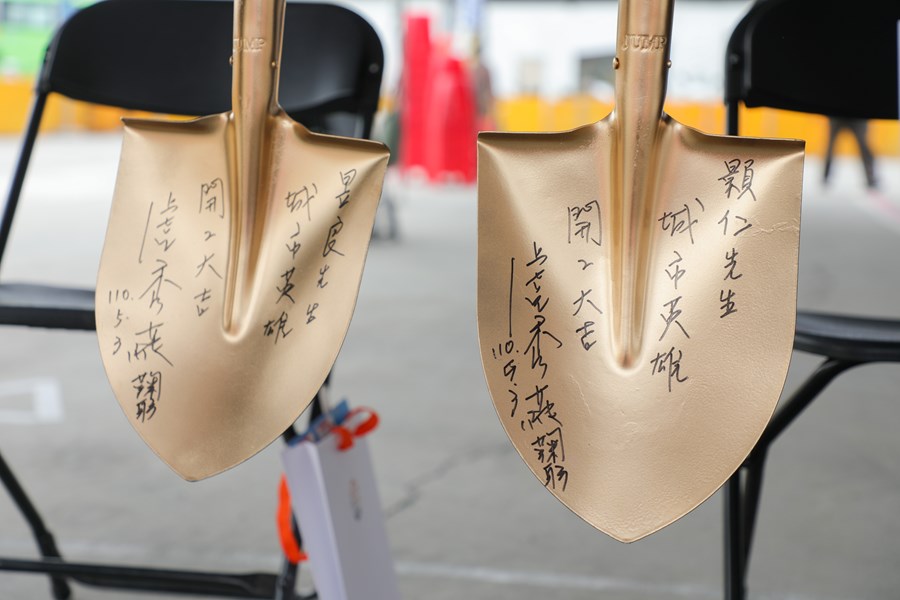 JUMP
昱先生
城市英雄
開工大吉
盧秀燕 鞠躬
110.5.3
JUMP
顯仁先生
城市英雄
開工大吉
盧秀燕 鞠躬
110.5.3